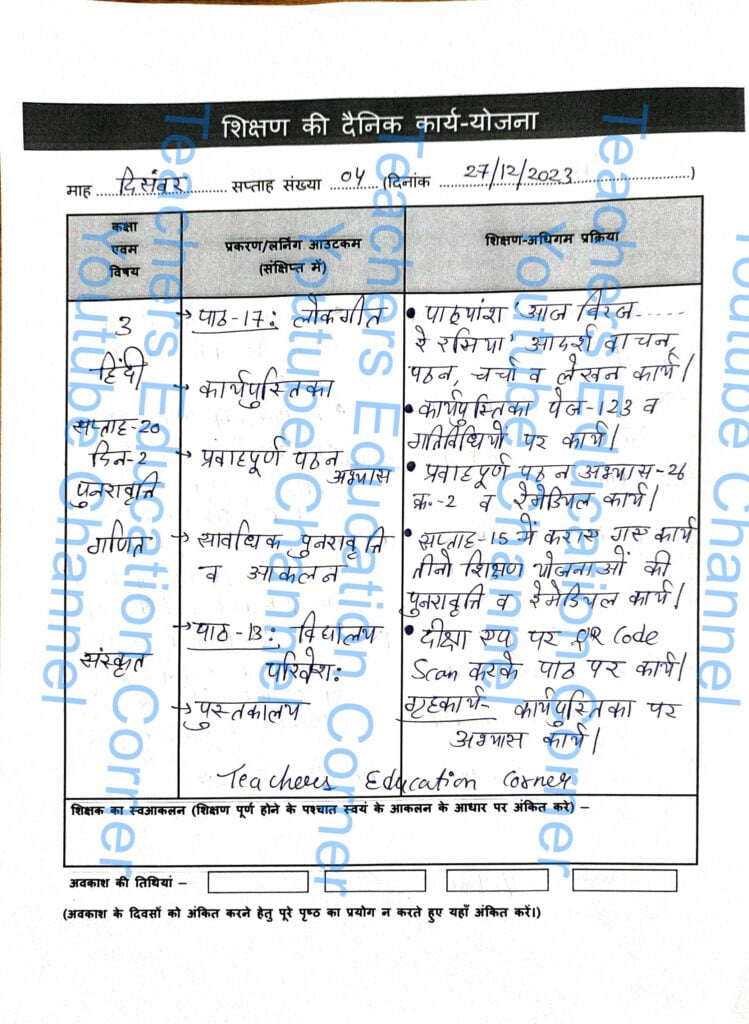 शिक्षण की दैनिक कार्य-योजना
माह दिसंबर सप्ताह संख्या 04 (दिनांक 27/12/2023)
कक्षा
एवम
विषय
प्रकरण/लर्निंग आउटकम
(संक्षिप्त में)
शिक्षण-अधिगम प्रक्रिया
3
हिंदी
सप्ताह-20
दिन-2
पुनरावृत्ति
गणित
संस्कृत
→ पाठ-17: लोकगीत
→ कार्यपुस्तिका
→ प्रवाहपूर्ण पठन
अभ्यास
→ सावधिक पुनरावृत्ति
व आकलन
→ पाठ-13: विद्यालय
परिवेश:
→ पुस्तकालय
• पाठ्यांश 'आज बिरज.....
रे रसिया' आदर्श वाचन,
पठन, चर्चा व लेखन कार्य।
• कार्यपुस्तिका पेज-123 व
गतिविधियों पर कार्य।
• प्रवाहपूर्ण पठन अभ्यास-26
क्र.-2 व रेमेडियल कार्य।
• सप्ताह-15 में कराए गए कार्य
तीनो शिक्षण योजनाओं की
पुनरावृत्ति व रेमेडियल कार्य।
• दीक्षा एप पर QR Code
Scan करके पाठ पर कार्य।
गृहकार्य- कार्यपुस्तिका पर
अभ्यास कार्य।
Teachers Education Corner
शिक्षक का स्वआकलन (शिक्षण पूर्ण होने के पश्चात स्वयं के आकलन के आधार पर अंकित करे) –
अवकाश की तिथियां –
(अवकाश के दिवसों को अंकित करने हेतु पूरे पृष्ठ का प्रयोग न करते हुए यहाँ अंकित करें।)
Teachers Education Corner
Youtube Channel
Teachers Education Corner
Youtube Channel
Teachers Education Corner
Youtube Channel